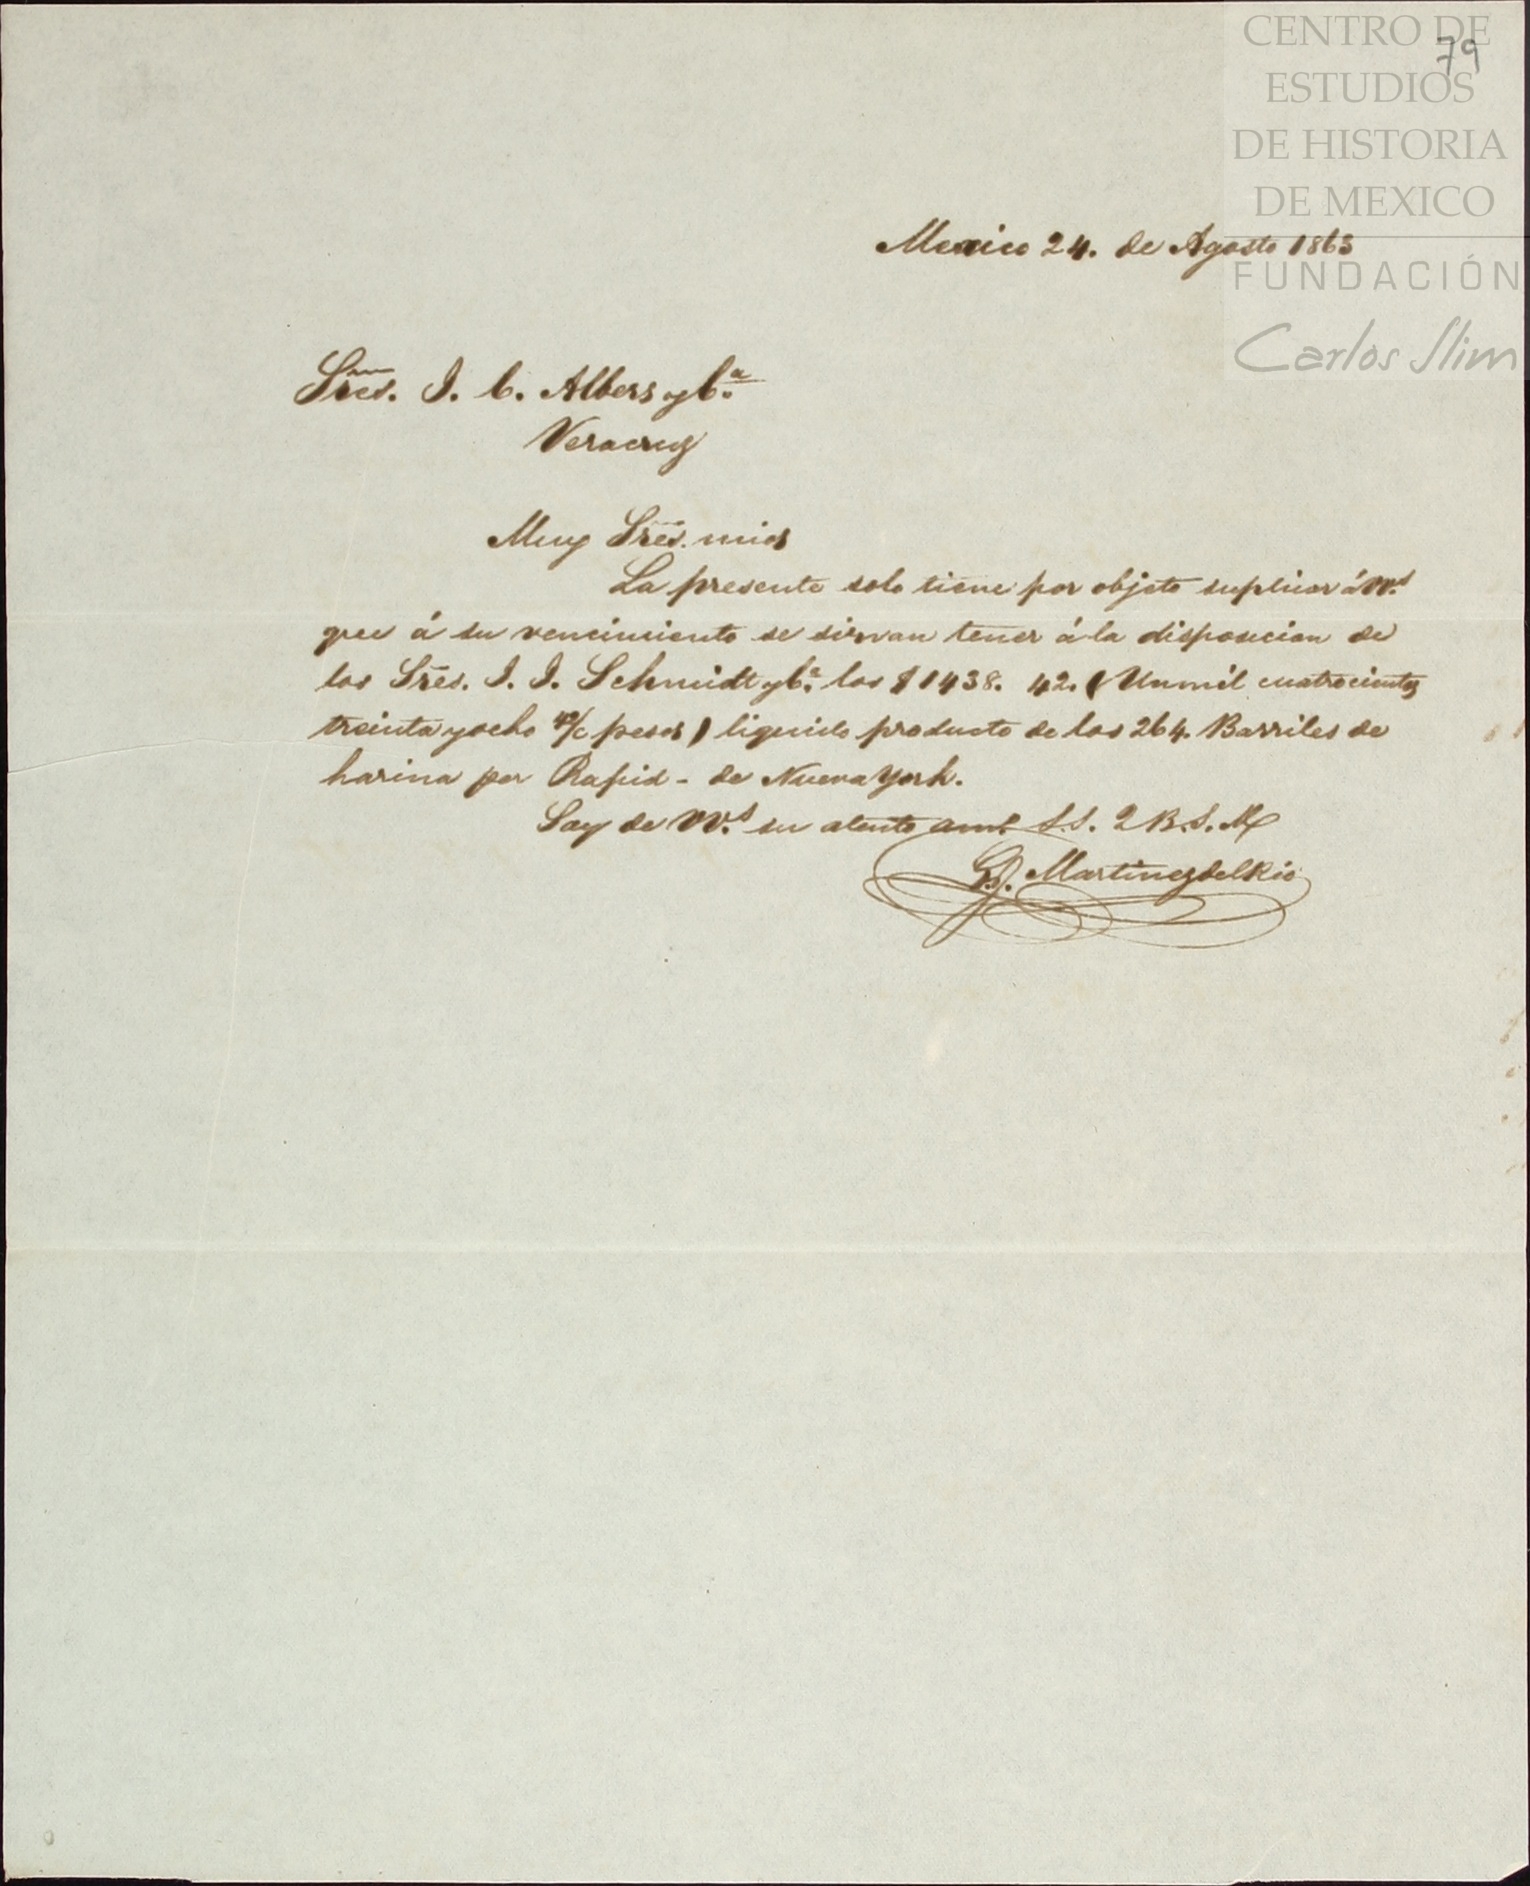 CENTRO DE
ESTUDIOS
DE HISTORIA
DE MEXICO
FUNDACIÓN
Carlos Slim
79
Mexico 24. de Agosto 1863
Sres. J. C. Albers y Cª
Veracruz
Muy Sres. mios
La presente solo tiene por objeto suplicar á VV.s
que á su vencimiento se sirvan tener á la disposicion de
los Sres. J. J. Schmidt y Cª los $1438. 42. (Un mil cuatrocientos
treinta y ocho 42/c pesos) liquido producto de los 264. Barriles de
harina per Rapid - de Nueva York.
Soy de VV.s su atento am.º S.S. Q B.S.M
Martinez del Rio